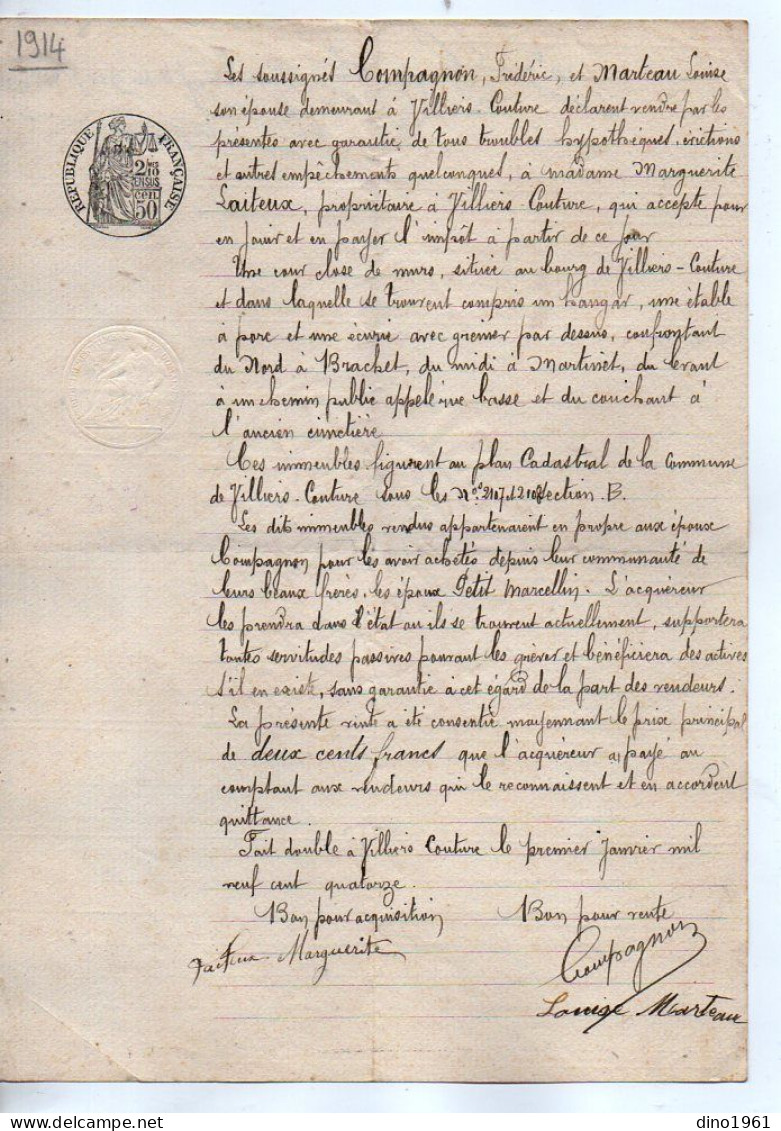 1914
RÉPUBLIQUE FRANÇAISE
2/10 EN SUS
50 cen
Les soussignés Compagnon, Frédéric, et Marteau Louise
son épouse demeurant à Villiers-Couture déclarent vendre par les
présentes avec garantie de tous troubles hypothèques, évictions
et autres empêchements quelconques, à madame Marguerite
Laiteux, propriétaire à Villiers-Couture, qui accepte pour
en jouir et en payer l'impôt à partir de ce jour
Une cour close de murs, située au bourg de Villiers-Couture
et dans laquelle se trouvent compris un hangar, une étable
à porc et une écurie avec grenier par dessus, confrontant
du Nord à Brachet, du midi à Martinet, du levant
à un chemin public appelé rue basse et du couchant à
l'ancien cimetière
Ces immeubles figurent au plan Cadastral de la Commune
de Villiers-Couture sous les Nos 2107 et 2108 section B.
Les dits immeubles vendus appartenaient en propre aux époux
Compagnon pour les avoir achetés depuis leur communauté de
leurs beaux frères, les époux Petit Marcellin. L'acquéreur
les prendra dans l'état où ils se trouvent actuellement, supportera
toutes servitudes passives pouvant les grever et bénéficiera des actives
s'il en existe, sans garantie à cet égard de la part des vendeurs.
La présente vente a été consentie moyennant le prix principal
de deux cents francs que l'acquéreur a payé au
comptant aux vendeurs qui le reconnaissent et en accordent
quittance.
Fait double à Villiers Couture le premier Janvier mil
neuf cent quatorze.
Bon pour acquisition Bon pour vente
Laiteux Marguerite Compagnon
Louise Marteau
dino1961